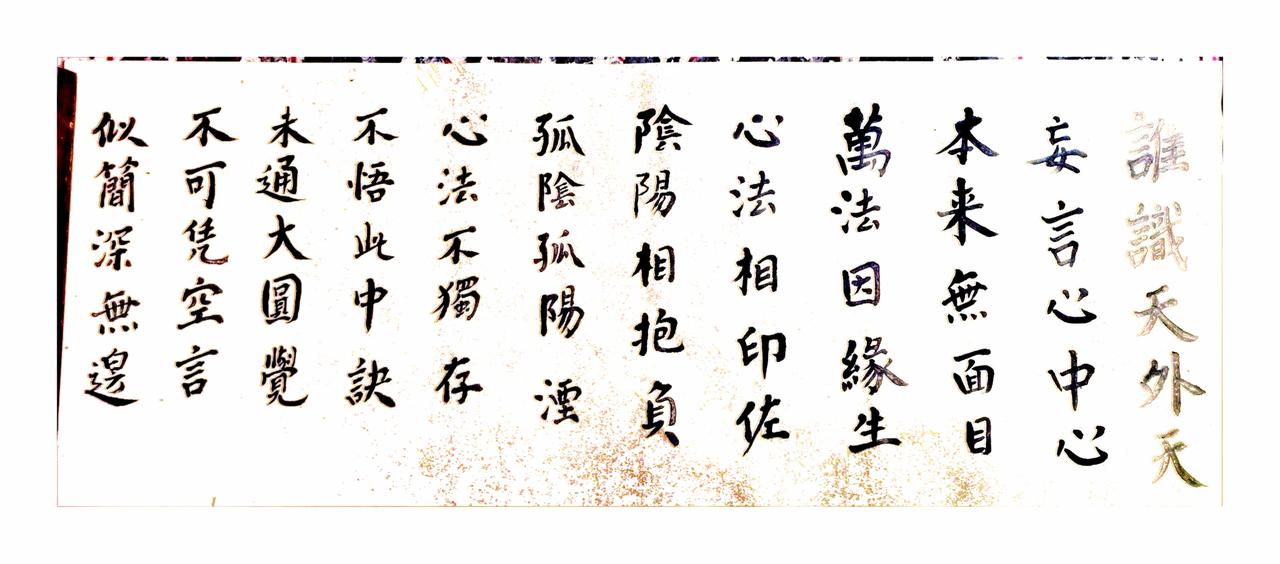 誰識天外天
妄言心中心
本来無面目
萬法因緣生
心法相印佐
陰陽相抱負
孤陰孤陽湮
心法不獨存
不悟此中訣
未通大圓覺
不可凭空言
似簡深無邊